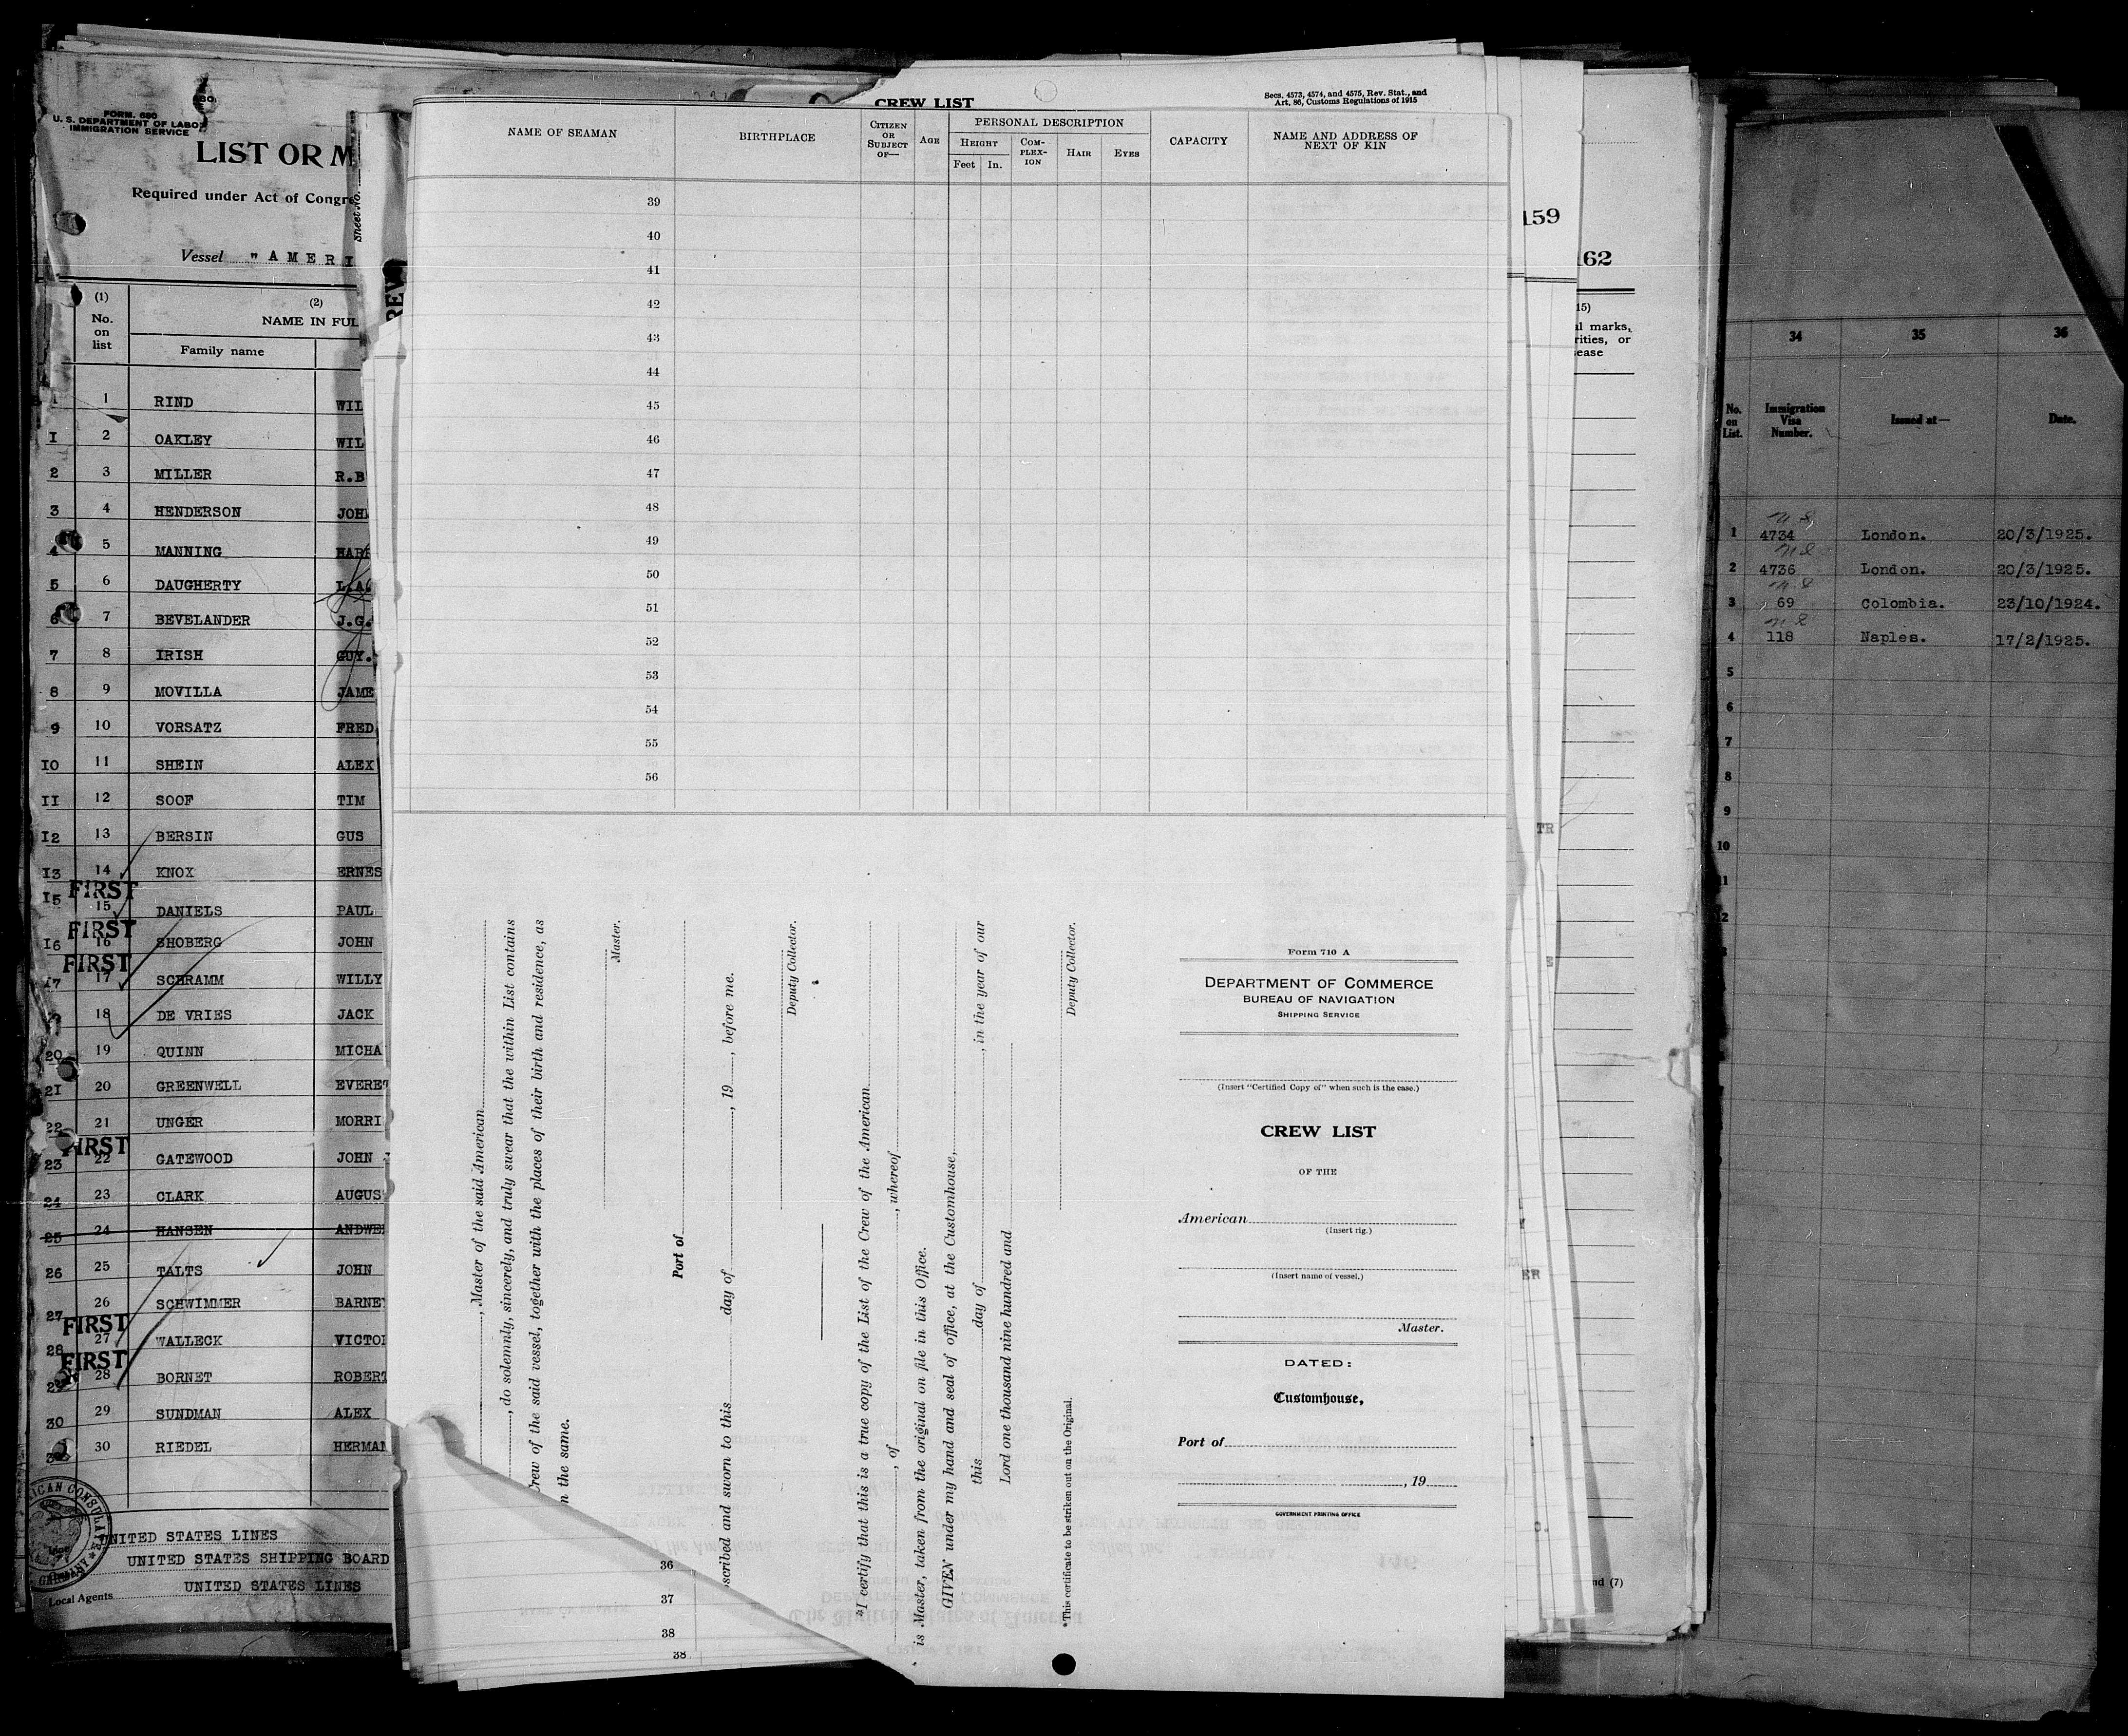 FORM. 680
U. S. DEPARTMENT OF LABO
IMMIGRATION SERVICE
LIST OR M
Required under Act of Congre
Sheet No.
Vessel "AMERI
(1)
No.
on
list
(2)
NAME IN FUL
Family name
1 1 RIND WIL
1 2 OAKLEY WIL
2 3 MILLER R.B
3 4 HENDERSON JOH
4 5 MANNING HAR
5 6 DAUGHERTY L.A
6 7 BEVELANDER J.G.
7 8 IRISH GUY.
8 9 MOVILLA JAME
9 10 VORSATZ FRED
10 11 SHEIN ALEX
11 12 SOOF TIM
12 13 BERSIN GUS
13 14 KNOX ERNES
FIRST
15 15 DANIELS PAUL
FIRST
16 16 SHOBERG JOHN
FIRST
17 17 SCHRAMM WILLY
18 DE VRIES JACK
20 19 QUINN MICHA
21 20 GREENWELL EVERE
22 21 UNGER MORRI
FIRST
23 22 GATEWOOD JOHN
24 23 CLARK AUGUS
25 24 HANSEN ANDWE
26 25 TALTS JOHN
27 26 SCHWIMMER BARNE
FIRST
28 27 WALLECK VICTO
FIRST
29 28 BORNET ROBERT
30 29 SUNDMAN ALEX
30 RIEDEL HERMA
ICAN CONSULATE
GERMANY
UNITED STATES LINES
UNITED STATES SHIPPING BOARD
UNITED STATES LINES
Local Agents
REW
CREW LIST
Secs. 4573, 4574, and 4575, Rev. Stat., and
Art. 86, Customs Regulations of 1915
NAME OF SEAMAN
BIRTHPLACE
CITIZEN
OR
SUBJECT
OF—
AGE
PERSONAL DESCRIPTION
HEIGHT
Feet In.
COM-
PLEX-
ION
HAIR
EYES
CAPACITY
NAME AND ADDRESS OF
NEXT OF KIN
39
40
41
42
43
44
45
46
47
48
49
50
51
52
53
54
55
56
, Master of the said American
, do solemnly, sincerely, and truly swear that the within List contains
Crew of the said vessel, together with the places of their birth and residence, as
n the same.
Master.
Port of
scribed and sworn to this day of , 19 , before me.
Deputy Collector.
*I certify that this is a true copy of the List of the Crew of the American
, of , whereof
is Master, taken from the original on file in this Office.
GIVEN under my hand and seal of office, at the Customhouse,
this day of , in the year of our
Lord one thousand nine hundred and
Deputy Collector.
*This certificate to be striken out on the Original.
Form 710 A
DEPARTMENT OF COMMERCE
BUREAU OF NAVIGATION
SHIPPING SERVICE
(Insert "Certified Copy of" when such is the case.)
CREW LIST
OF THE
American
(Insert rig.)
(Insert name of vessel.)
Master.
DATED:
Customhouse,
Port of
, 19
GOVERNMENT PRINTING OFFICE
36
37
38
38
159
162
15)
al marks,
rities, or
sease
TR
ER
nd (7)
34
35
36
No.
on
List.
Immigration
Visa
Number.
Issued at—
Date.
1 4734 London. 20/3/1925.
2 4736 London. 20/3/1925.
3 69 Colombia. 23/10/1924.
4 118 Naples. 17/2/1925.
5
6
7
8
9
10
1
2
3